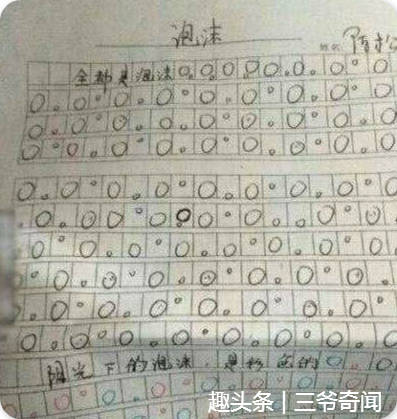 泡沫
姓名
全都是泡沫
阳光下的泡沫,是彩色的
趣头条 | 三爷奇闻